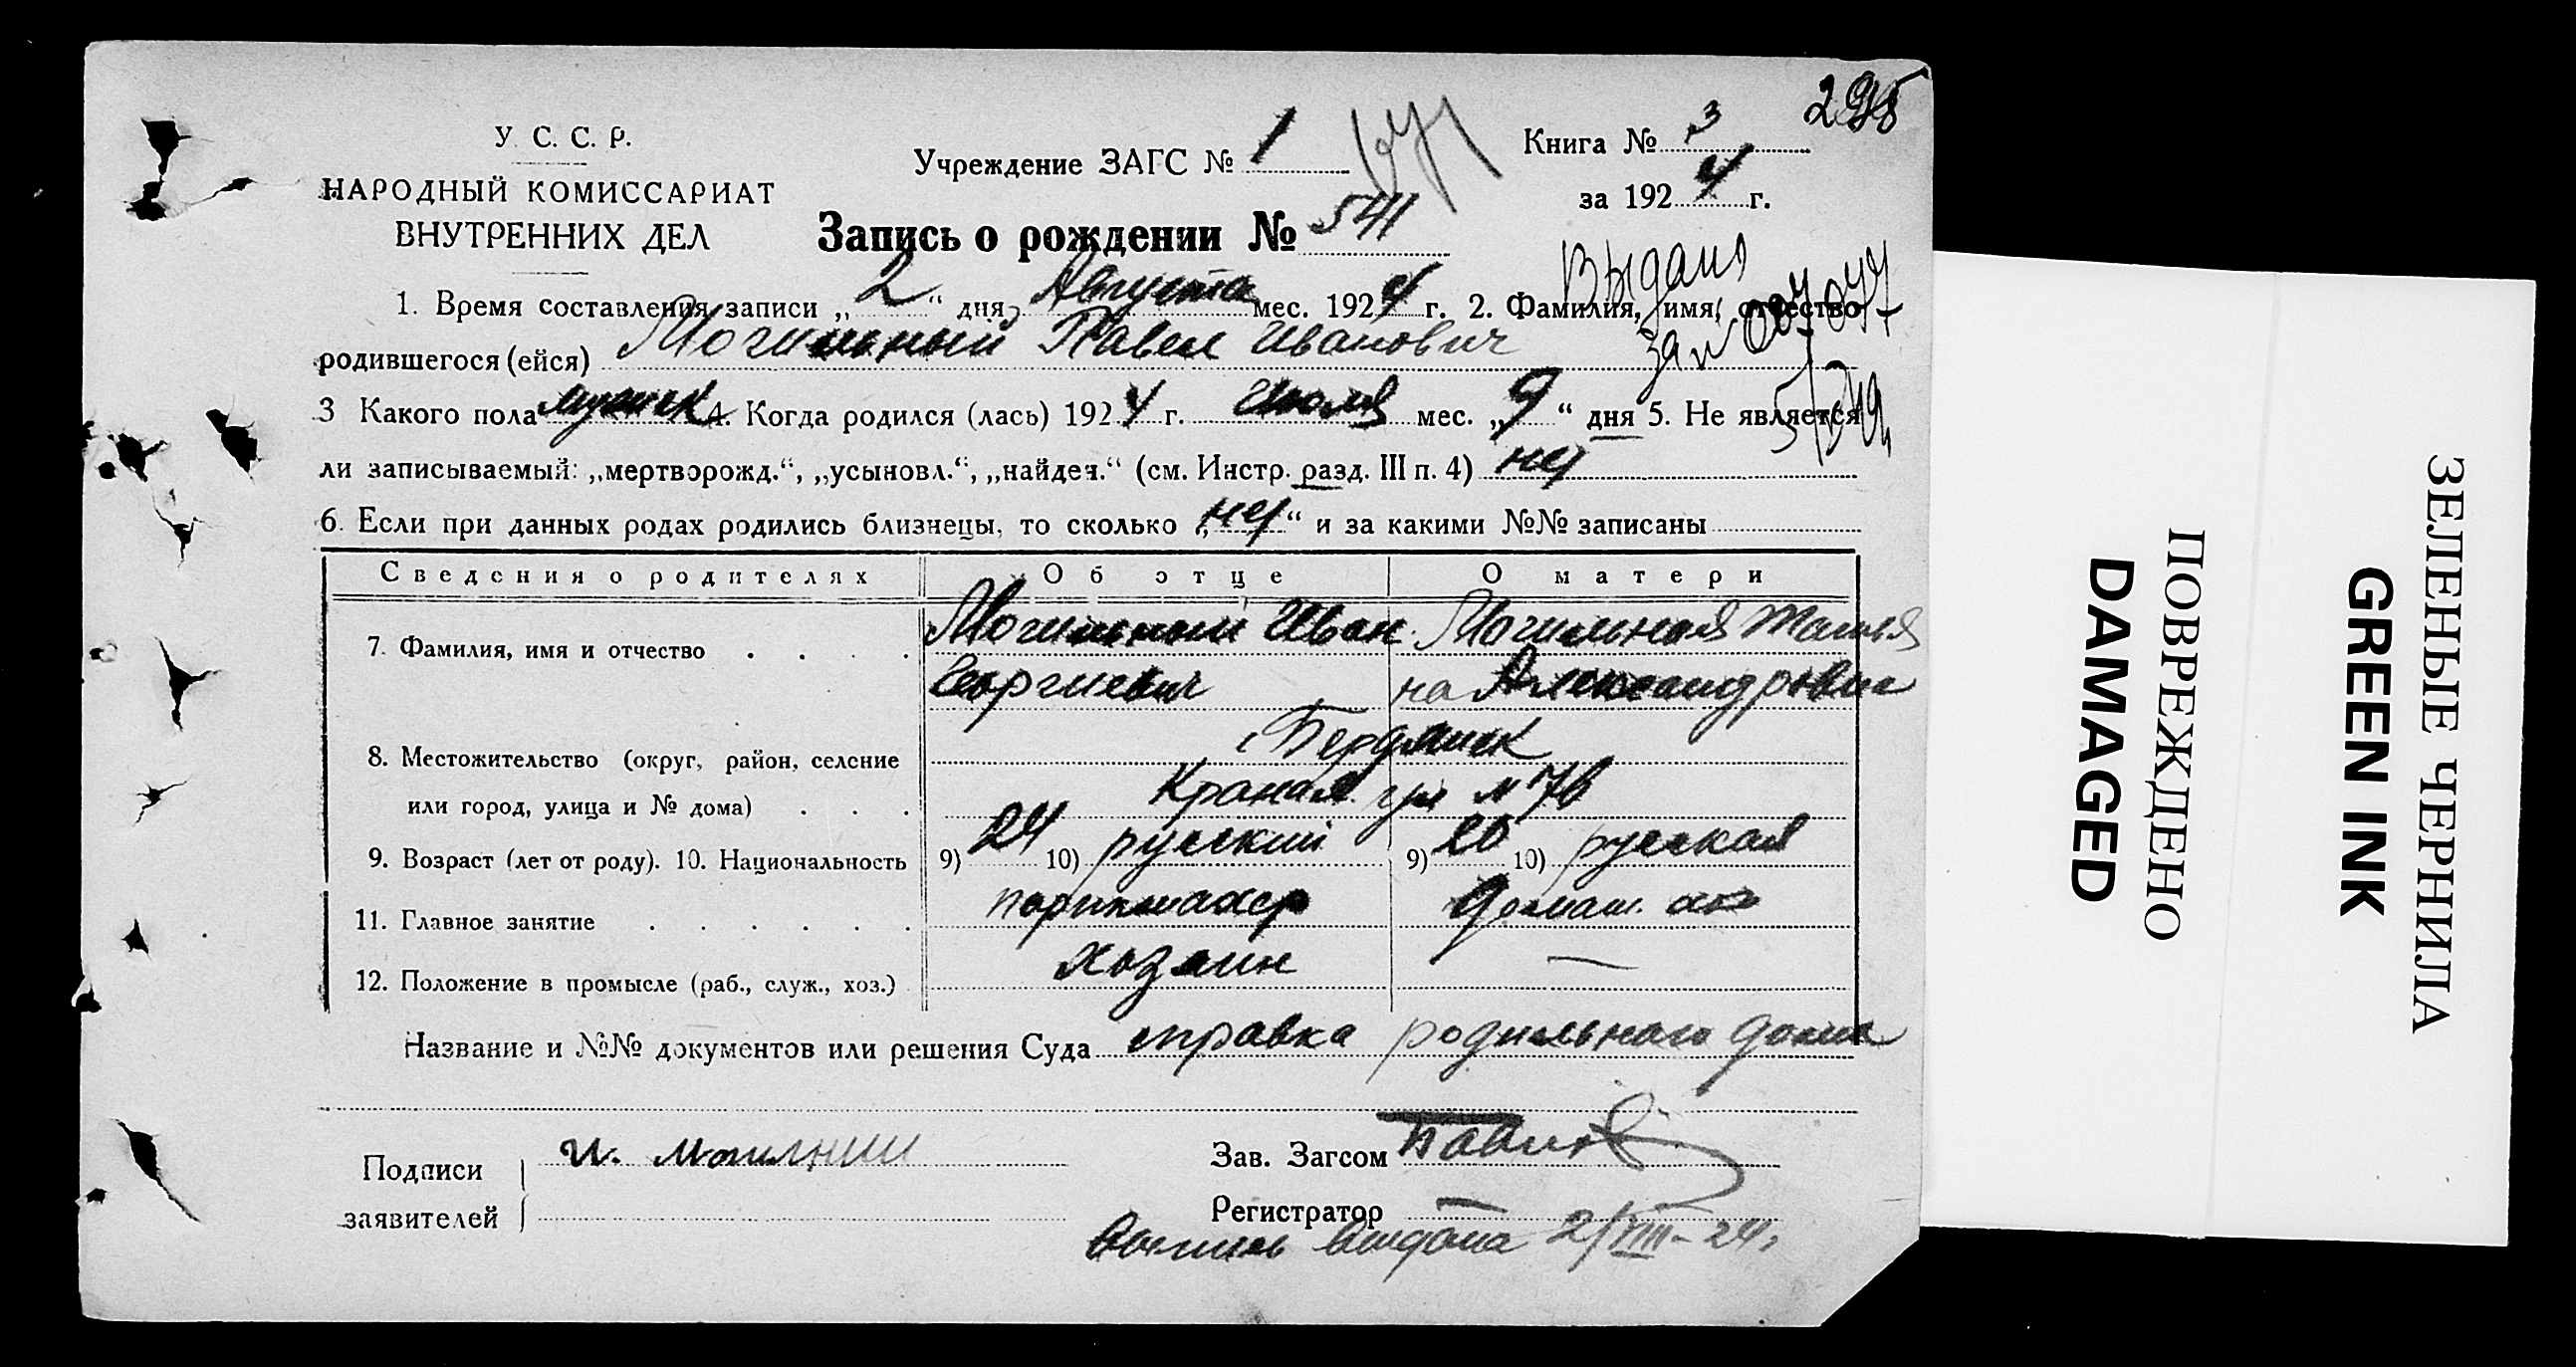 У. С. С. Р.
НАРОДНЫЙ КОМИССАРИАТ
ВНУТРЕННИХ ДЕЛ
Учреждение ЗАГС № 1
Книга № 3
за 1924 г.
Запись о рождении № 541
Выдано
1. Время составления записи „2“ дня Августа мес. 1924 г. 2. Фамилия, имя, отчество
родившегося (ейся) Могильный Павел Иванович
3 Какого пола мужск 4. Когда родился (лась) 1924 г. июля мес. „9“ дня 5. Не является
ли записываемый: „мертворожд.“, „усыновл.“, „найден.“ (см. Инстр. разд. III п. 4) нет
6. Если при данных родах родились близнецы, то сколько „нет“ и за какими №№ записаны
Сведения о родителях Об отце О матери
7. Фамилия, имя и отчество . . . . Могильный Иван Могильная Татья
Георгиевич на Александровна
8. Местожительство (округ, район, селение г. Бердянск
или город, улица и № дома) . . . ул № 76
9. Возраст (лет от роду). 10. Национальность 9) 24 10) русский 9) 20 10) русская
11. Главное занятие . . . . . . парикмахер домаш. хоз
12. Положение в промысле (раб., служ., хоз.) хозяин —
Название и №№ документов или решения Суда справка родильного дома
Подписи И. Могилний Зав. Загсом
заявителей Регистратор —
Выпись выдана 2/VIII-24г
ПОВРЕЖДЕНО
DAMAGED
ЗЕЛЕНЫЕ ЧЕРНИЛА
GREEN INK